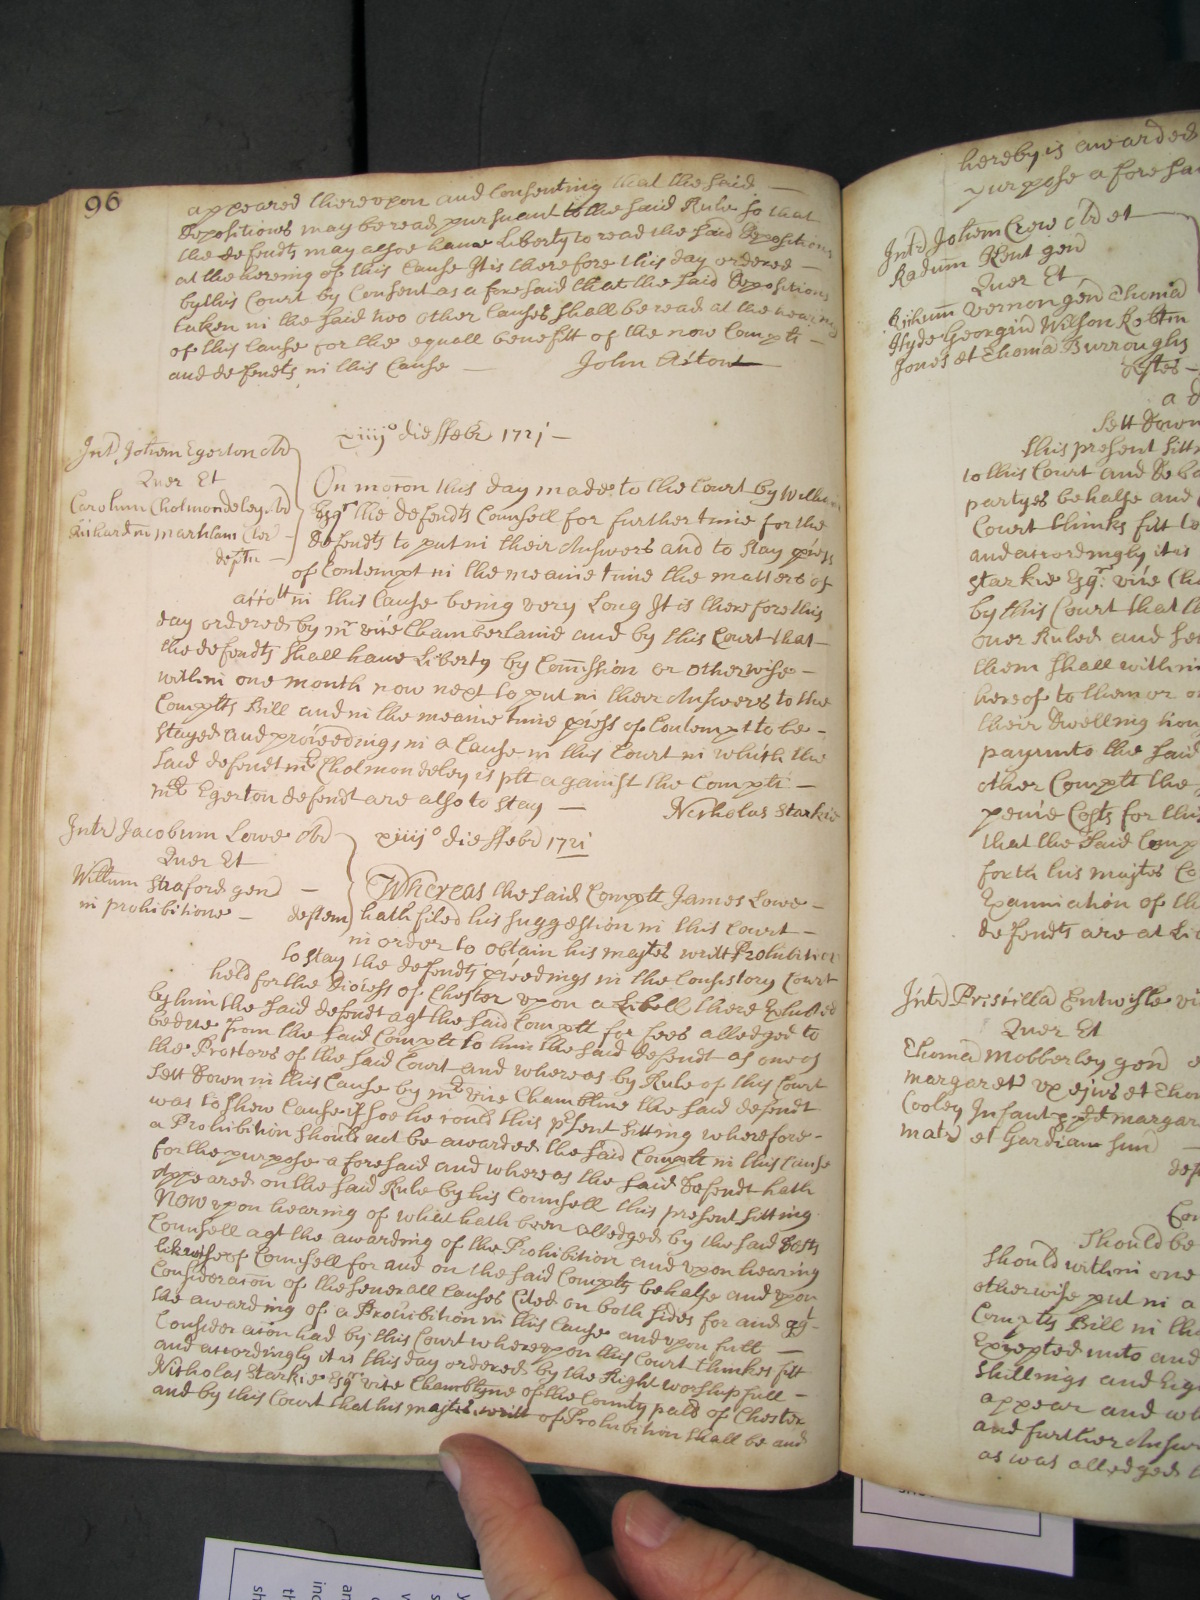 96
appeared thereupon and Consenting that the said
Depositions may be read pursuant to the said Rule so that
the defendts may alsoe have Liberty to read the said Depositions
at the hereing of this Cause It is therefore this day ordered
by this Court by Consent as aforesaid that the said Depositions
taken in the said two other Causes shall be read at the hearing
of this Cause for the equall benefitt of the now Complts
and defendts in this Cause John Aston
xiiijo die ffebr 1721
Intr Johem Egerton Ar
Quer Et
Carolum Cholmondeley Ar
Richardm Markham Cler
deftes
On motion this day made to the Court by William
Esqr the defendts Counsell for further time for the
defendts to putt in their Answers and to stay p'cess
of Contempt in the meane time the matters of
accott in this Cause being very Long It is therefore this
day ordered by mr vice Chamberlaine and by this Court that
the defendts shall have Liberty by Comission or otherwise
within one month now next to put in their Answers to the
Complts Bill and in the meane time p'cess of Contempt to be
stayed and proceedings in a Cause in this Court in which the
said defendt mr Cholmondeley is plt against the Complt
mr Egerton defendt are also to stay
Nicholas Starkie
Intr Jacobum Lowe Ar
Quer Et
Willum Straford gen
in prohibitione deftem
xiiijo die ffebr 1721
Whereas the said Complt James Lowe
hath filed his suggestion in this Court
in order to obtain his majtes writt Prohibition
to stay the defendts p'ceedings in the Consistory Court
held for the Diocess of Chester upon a Libell there Exhibited
by him the said defendt agt the said Complt for fees alledged to
be due from the said Complt to him the said defendt as one of
the Proctors of the said Court and whereas by Rule of this Court
sett down in this Cause by mr vice Chamblaine the said defendt
was to shew Cause if soe he could this p'sent sitting wherefore
a Prohibition should not be awarded the said Complt in this Cause
for the purpose aforesaid and whereas the said defendt hath
appeared on the said Rule by his Counsell this present sitting
Now upon hearing of what hath been alledged by the said defts
Counsell agt the awarding of the Prohibition and upon hearing
likewise of Counsell for and on the said Complts behalfe and upon
Consideracion of the severall Causes Cited on both sides for and agt
the awarding of a Prohibition in this Cause and upon full
Consideracion had by this Court whereupon this Court thinkes fitt
and accordingly it is this day ordered by the Right worshipfull
Nicholas Starkie Esqr vice Chamblyne of the County palat of Chester
and by this Court that his majtes writt of Prohibition shall be and
hereby is awarded
purpose aforesa
Intr Johem Crewe Ar et
Radum Kent gen
Quer Et
Richum Vernon gen Thomã
Hyde Georgiu Wilson Robtm
Jones et Thomã Burroughs
deftes
a d
sett down
this present sitt
to this Court and deba
partyes behalfe and
Court thinks fitt to
and accordingly it is
Starkie Esqr: vice Cha
by this Court that th
over Ruled and se
them shall within
hereof to them or o
their dwelling hou
pay unto the said
other Complt the
pence Costs for thi
that the said Comp
forth his majtes Co
Examination of th
defendts are at Li
Intr Priscilla Entwisle vi
Quer Et
Thomã Mobberley gen e
Margaret ux ejus et Tho
Cooley Infant p Margar
matr et Gardian suu
def
Con
should be
should within one
otherwise put in a
Complts Bill in the
Excepted unto and
shillings and Eig
appear and wh
and further Answ
as was alledged